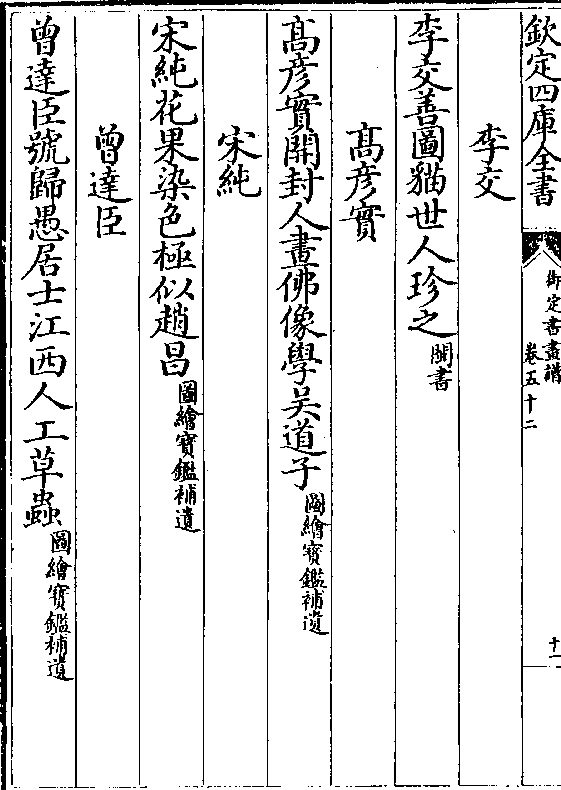 欽定四庫全書
御定書畫譜
卷五十二
十一
李交
李交善圖猫世人珍之閩書
髙彦實
髙彦實開封人畫佛像學吴道子圖繪寳鑑補遺
宋純
宋純花果染色極似趙昌圖繪寳鑑補遺
曾達臣
曾達臣號歸愚居士江西人工草蟲圖繪寳鑑補遺